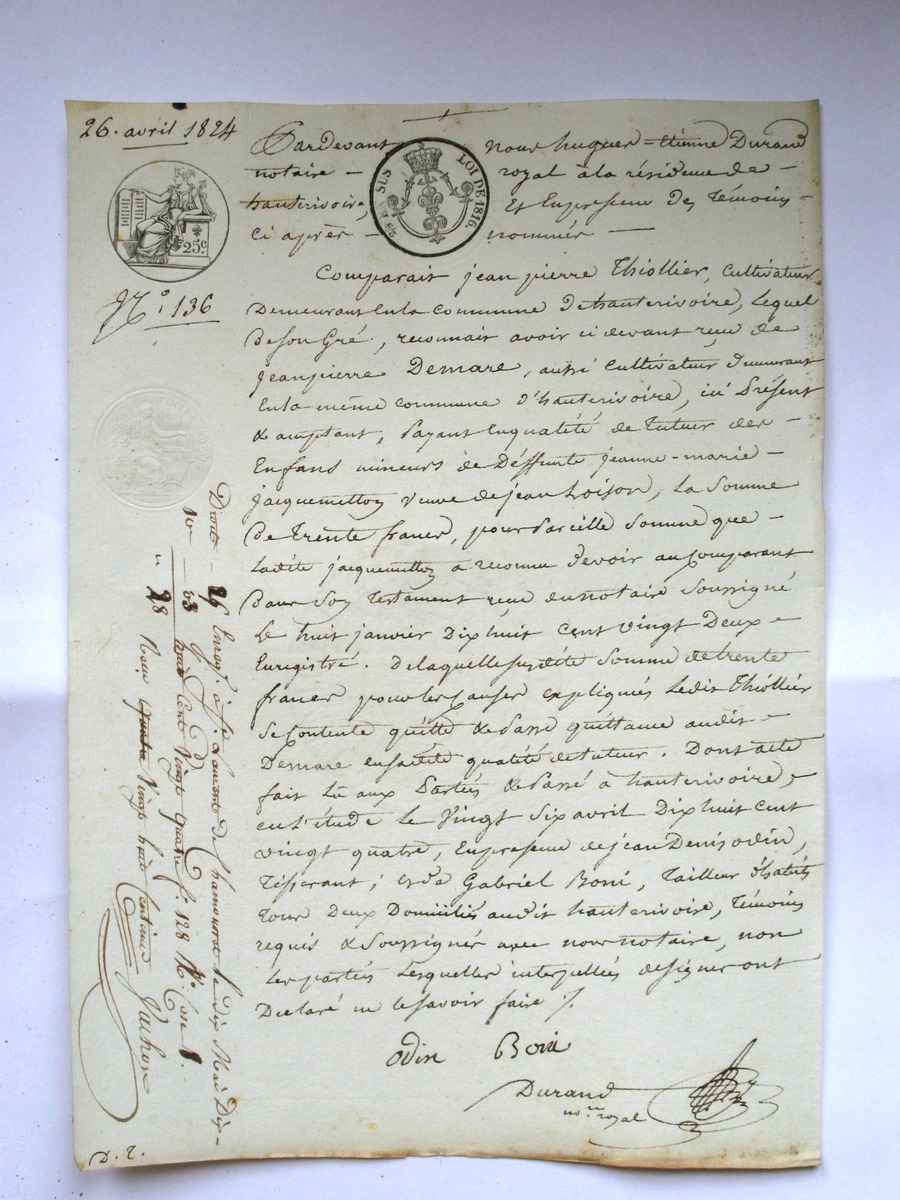 26. avril 1824
Pardevant nous hugues-étienne Durand
notaire - royal à la résidence de -
hauterivoire, Et En presence des Témoins -
Ci après - nommés -
25 EN SUS LOI DE 1816.
25 c
N.o 136
Comparait jean pierre Thiollier, Cultivateur
Demeurant En la Commune d'hauterivoire, lequel
De Son Gré, reconnait avoir ci devant reçu de
jeanpierre Demare, aussi Cultivateur demeurant
En la même commune d'hauterivoire, ici Présent
& acceptant, Payant En qualité de tuteur des -
Enfans mineurs de Déffunte jeanne-marie -
jacquemetton veuve de jean Loison, La Somme
De Trente francs, pour Pareille Somme que -
Ladite jacquemetton a reconnu devoir au Comparant
Dans Son Testament reçu du notaire Soussigné
Le huit janvier Dix huit Cent vingt Deux -
Enregistré. De laquelle susdite Somme de trente
francs pour les Causes expliqués Ledit Thiollier
Se Contente quitte & Passe quittance audit -
Demare en sadite qualité de tuteur. Dont acte
fait Lû aux Parties & Passé à hauterivoire,
en L'étude le Vingt Six avril Dix huit Cent
vingt quatre, En presence de jean Denis odin,
Tisserant; et de Gabriel Boni, Tailleur d'habits
Tous Deux Domiciliés audit hauterivoire, Témoins
requis & Soussignés avec nous notaire, non
Les parties Lesquelles interpellés de signer ont
Déclaré ne le savoir faire /.
odin Boni
Durand
no.re royal
Droits - 25 Enreg.é à St Laurent De Chamousset le dix Mai Dix-
10.e - 03 huit Cent Vingt quatre f.o 128 R.o Case 1.
" 28 Reçu Vingt huit Centimes Vachon
D. T.